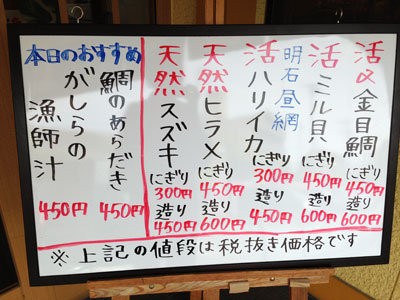 活〆金目鯛
にぎり
450円
造り
600円
活ミル貝
にぎり
450円
造り
600円
明石昼網
活ハリイカ
にぎり
300円
造り
450円
天然ヒラメ
にぎり
450円
造り
600円
天然スズキ
にぎり
300円
造り
450円
本日のおすすめ
鯛のあらだき
450円
がしらの
漁師汁
450円
※上記の値段は税抜き価格です